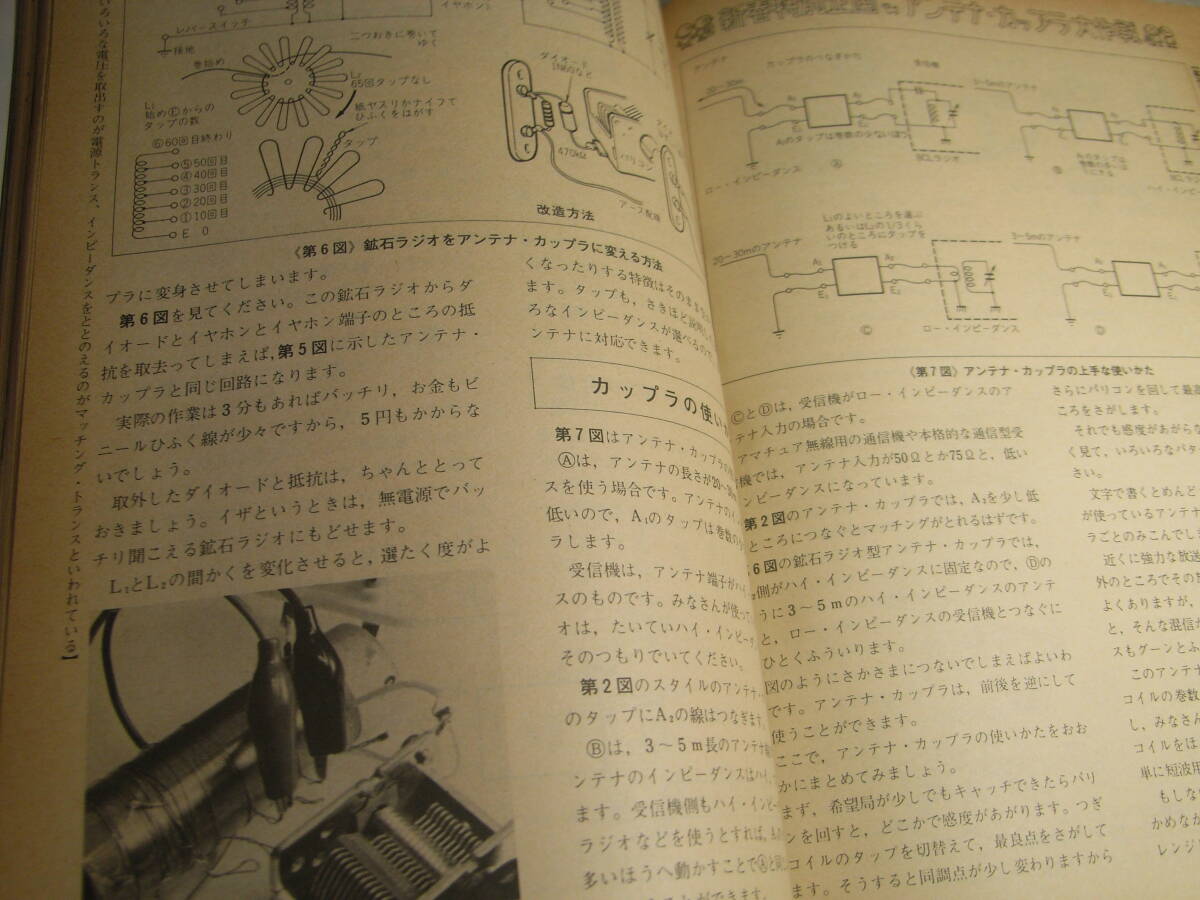 いろいろな電圧を取出すのが電源トランス、インピーダンスをととのえるのがマッチング・トランスといわれている】
レバースイッチ
接地
巻始め
二つおきに巻いて
ゆく
L₂
65回タップなし
紙ヤスリかナイフで
ひふくをはがす
L₁
始めⒺからの
タップの数
⑥60回目終わり
⑤50回目
④40回目
③30回目
②20回目
①10回目
E 0
タップ
ダイオード
1N60など
470kΩ
バリコン
アース配線
改造方法
《第6図》鉱石ラジオをアンテナ・カップラに変える方法
プラに変身させてしまいます。
第6図を見てください。この鉱石ラジオからダ
イオードとイヤホンとイヤホン端子のところの抵
抗を取去ってしまえば,第5図に示したアンテナ・
カップラと同じ回路になります。
実際の作業は3分もあればバッチリ，お金もビ
ニールひふく線が少々ですから，5円もかからな
いでしょう。
取外したダイオードと抵抗は，ちゃんととって
おきましょう。イザというときは，無電源でバッ
チリ聞こえる鉱石ラジオにもどせます。
L₁とL₂の間かくを変化させると，選たく度がよ
くなったりする特徴はそのまま
ます。タップも，さきほど説明
ろなインピーダンスが選べるので
ンテナに対応できます。
カップラの使い
第7図はアンテナ・カップラの
Ⓐは，アンテナの長さが20～30m
スを使う場合です。アンテナのイ
低いので，A₁のタップは巻数の
ラします。
受信機は，アンテナ端子がハイ
スのものです。みなさんが使って
オは，たいていハイ・インピーダ
そのつもりでいてください。
第2図のスタイルのアンテナ
のタップにA₂の線はつなぎます
Ⓑは，3～5m長のアンテナ
ンテナのインピーダンスはハイ
ます。受信機側もハイ・インピー
ラジオなどを使うとすれば，
多いほうへ動かすことで
ができます。
アンテナ・カップラ大作戦
アンテナ
カップラのつなぎかた
受信機
20～30m
3～5mのアンテナ
A₁のタップは巻数の少ないほう
Ⓐ
BCLラジオ
ロー・インピーダンス
A₁のタップは
巻数の多いほ
うに
Ⓑ
L₁のよいところを選ぶ
あるいはL₂の1/3くら
いのところにタップを
つける
20～30mのアンテナ
3～5mのアンテナ
A₁
A₂
E₁
E₂
Ⓒ
ロー・インピーダンス
A₁
E₁
Ⓓ
《第7図》アンテナ・カップラの上手な使いかた
ⒸとⒹは，受信機がロー・インピーダンスのア
テナ入力の場合です。
アマチュア無線用の通信機や本格的な通信型受
機では，アンテナ入力が50Ωとか75Ωと，低い
ンピーダンスになっています。
第2図のアンテナ・カップラでは，A₂を少し低
ところにつなぐとマッチングがとれるはずです。
6図の鉱石ラジオ型アンテナ・カップラでは，
側がハイ・インピーダンスに固定なので，Ⓓの
うに3～5mのハイ・インピーダンスのアンテ
と，ロー・インピーダンスの受信機とつなぐに
ひとくふういります。
図のようにさかさまにつないでしまえばよいわ
です。アンテナ・カップラは，前後を逆にして
使うことができます。
ここで，アンテナ・カップラの使いかたをおお
かにまとめてみましょう。
まず，希望局が少しでもキャッチできたらバリ
ンを回すと，どこかで感度があがります。つぎ
コイルのタップを切替えて，最良点をさがして
ます。そうすると同調点が少し変わりますから
さらにバリコンを回して最高
ころをさがします。
それでも感度があがらな
く見て，いろいろなパタ
さい。
文字で書くとめんど
が使っているアンテナ
ラごとのみこんでしま
近くに強力な放送
外のところでその
よくありますが，
と，そんな混信が
スもグーンとふ
このアンテナ
コイルの巻数
し，みなさん
コイルをほ
単に短波用
もしな
かめなが
レンジ